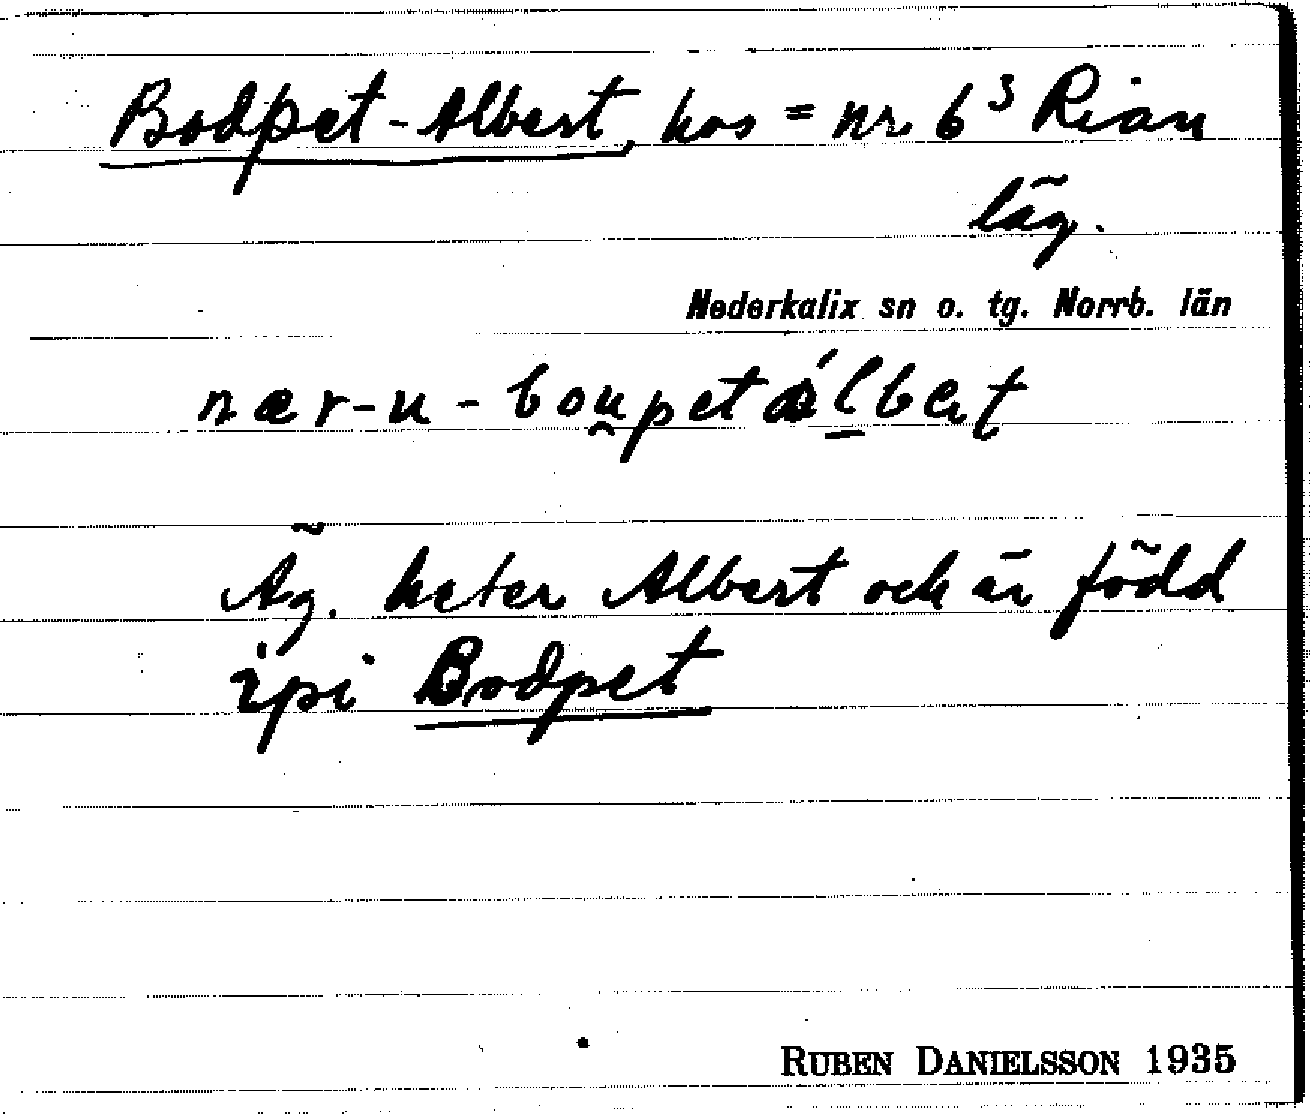 Bodpet-Albert, hos = nr. 6³ Rian
läg.
Nederkalix sn o. tg. Norrb. län
nær-u-bou̯petálbert
Äg. heter Albert och är född
ipi Bodpet
RUBEN DANIELSSON 1935